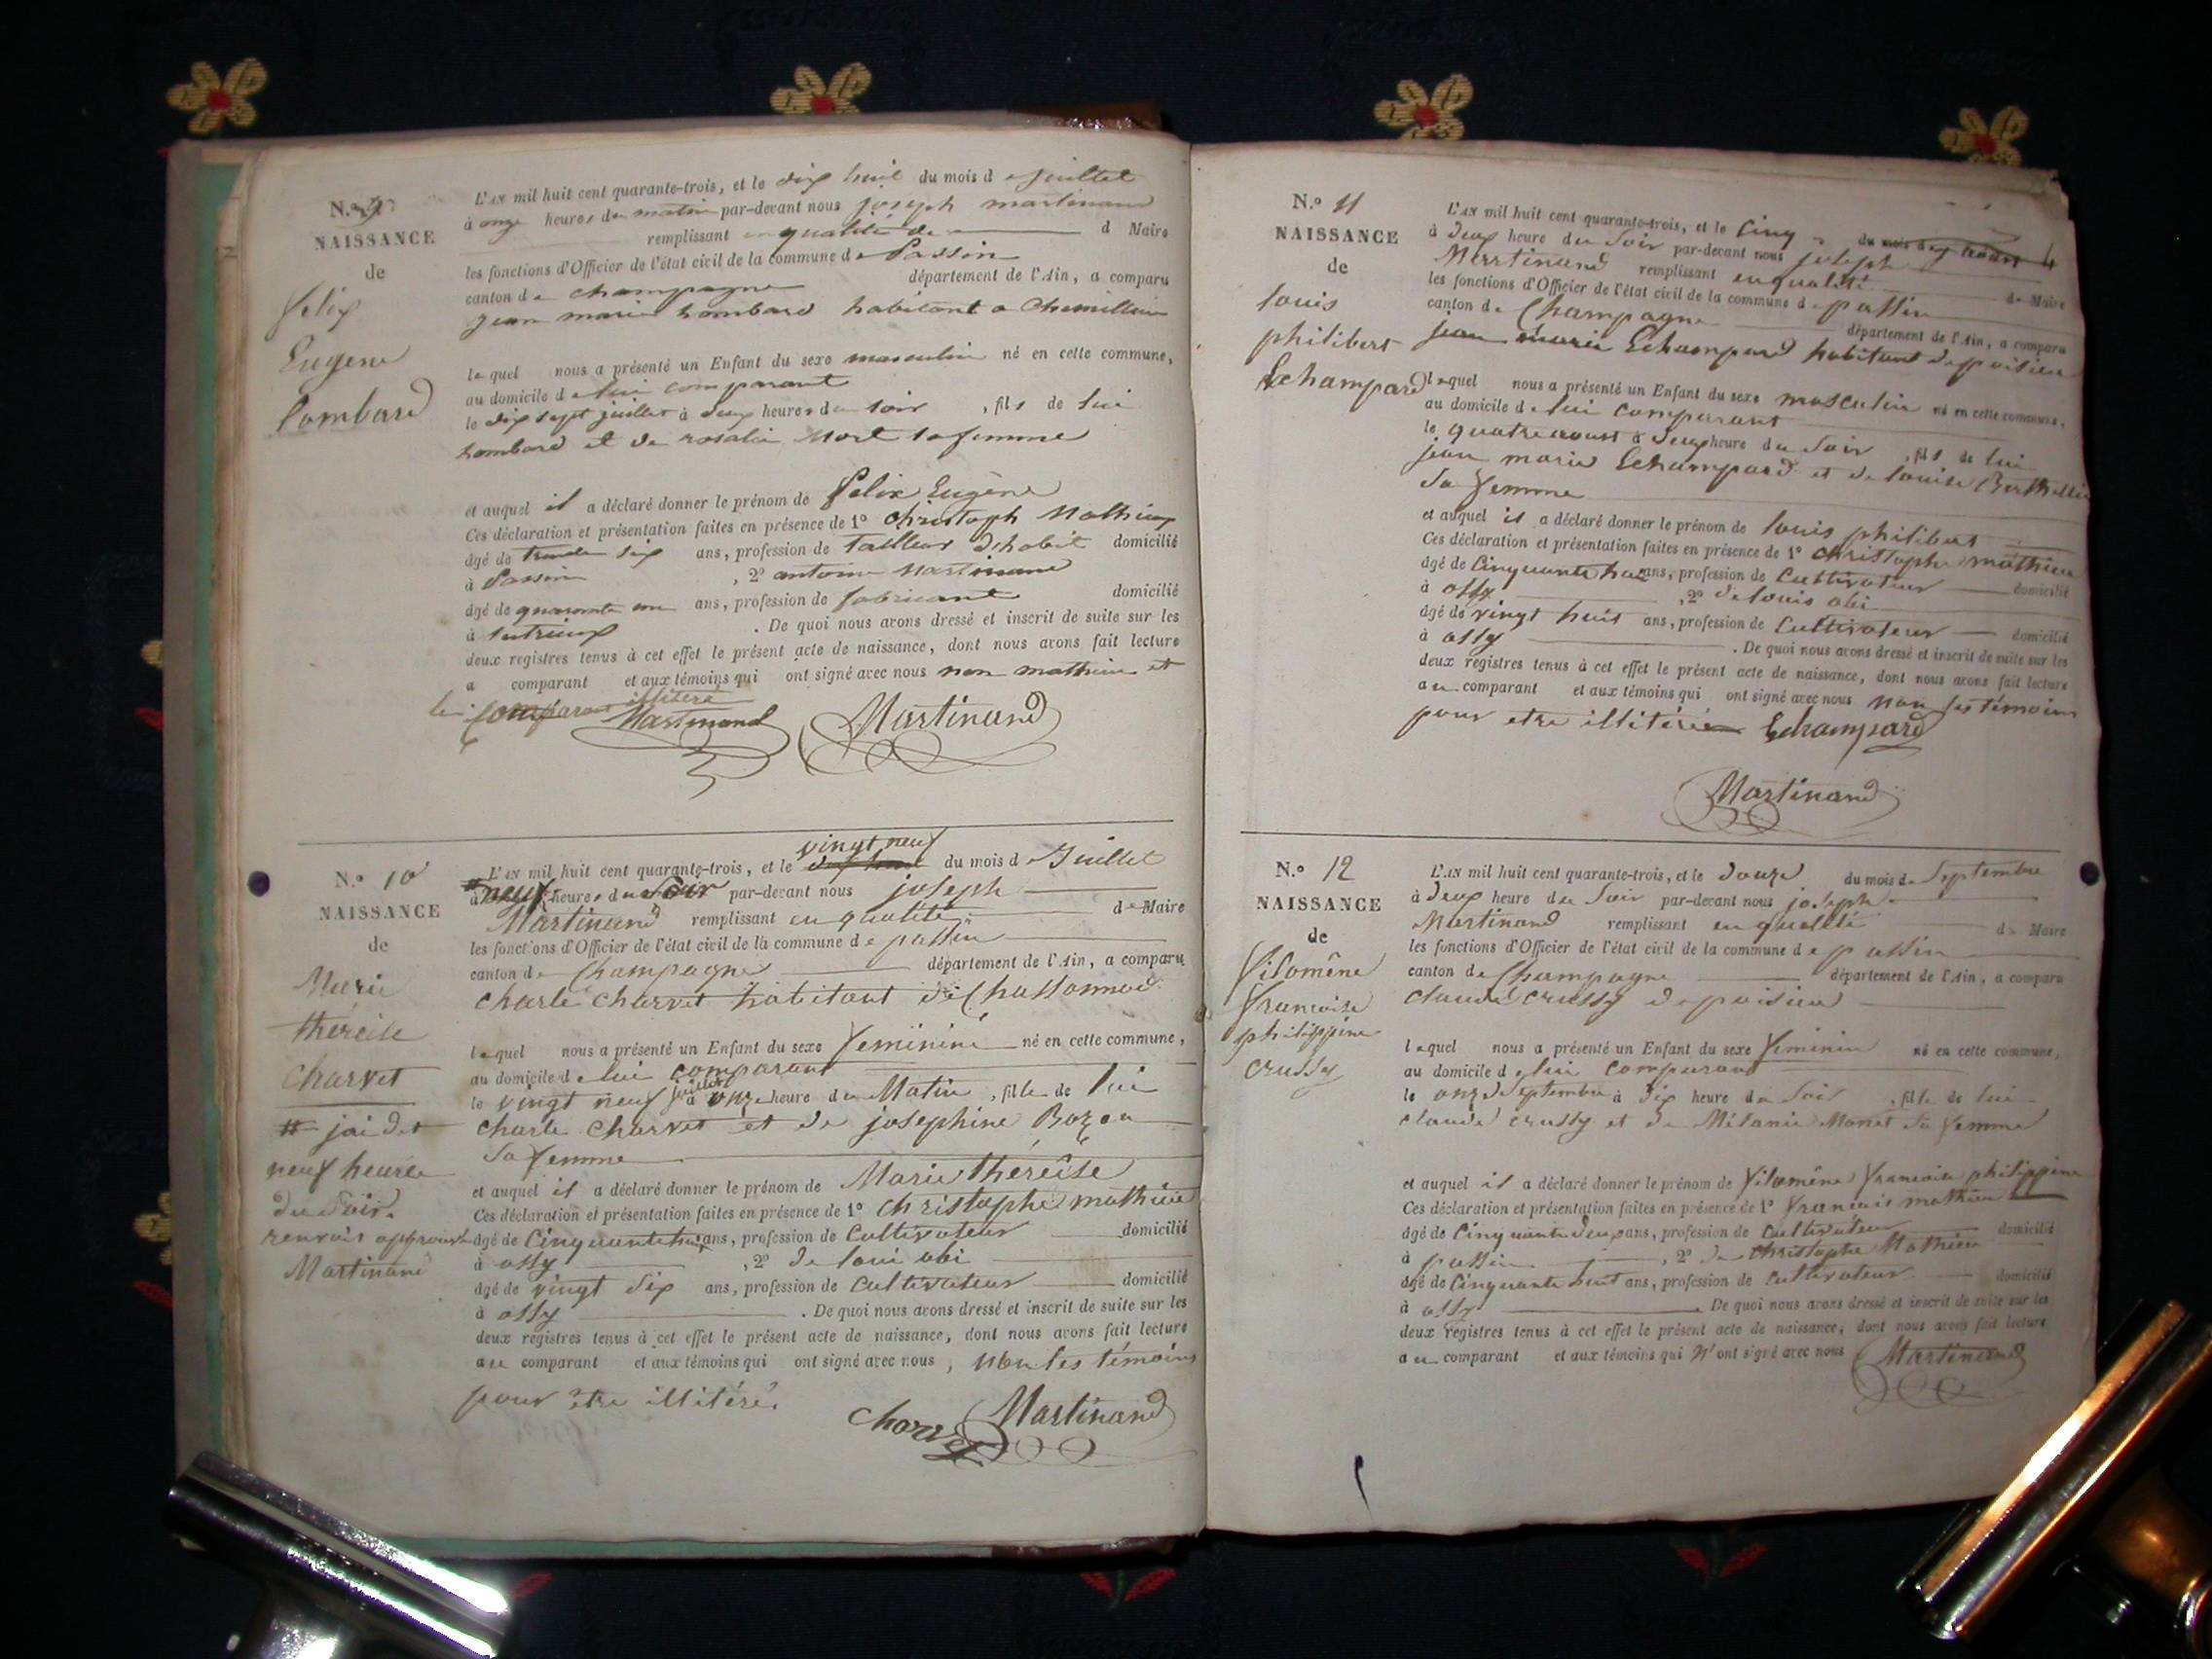 N.º 9
NAISSANCE
de
felix
Eugene
Lombard
L'AN mil huit cent quarante-trois, et le dix huit du mois de Juillet
à onze heures du matin par-devant nous joseph martinand
remplissant en qualité de d Maire
les fonctions d'Officier de l'état civil de la commune de Passin
canton de champagne département de l'Ain, a comparu
jean marie Lombard habitant a Chemillieu
lequel nous a présenté un Enfant du sexe masculin né en cette commune,
au domicile de lui comparant
le dix sept juillet à deux heures du soir , fils de lui
Lombard et de rosalie Mort sa femme
et auquel il a déclaré donner le prénom de felix Eugène
Ces déclaration et présentation faites en présence de 1º christoph Mathieu
âgé de trente six ans, profession de Tailleur d'habit domicilié
à Passin , 2º antoine Martinand
âgé de quarante un ans, profession de fabricant domicilié
à . De quoi nous avons dressé et inscrit de suite sur les
deux registres tenus à cet effet le présent acte de naissance, dont nous avons fait lecture
a comparant et aux témoins qui ont signé avec nous non mathieu et
le comparant illitéré
Martinand Martinand
N.º 10
NAISSANCE
de
Marie
theréise
Charvet
# jai dit
neuf heures
du Soir.
renvois approuvé
Martinand
vingt neuf
L'AN mil huit cent quarante-trois, et le dix huit du mois de Juillet
à neuf heures du Soir par-devant nous joseph
Martinand remplissant en qualité de Maire
les fonctions d'Officier de l'état civil de la commune de passin
canton de Champagne département de l'Ain, a comparu
charle charvet habitant de Chassonnod
lequel nous a présenté un Enfant du sexe feminine né en cette commune,
au domicile de lui comparant
le vingt neuf juillet à onze heure du Matin , fille de lui
charle Charvet et de josephine Bozon
Sa femme
et auquel il a déclaré donner le prénom de Marie thereise
Ces déclaration et présentation faites en présence de 1º christophe mathieu
âgé de Cinquante huit ans, profession de Cultivateur domicilié
à ossy , 2º de loui obi
âgé de vingt dix ans, profession de cultivateur domicilié
à ossy . De quoi nous avons dressé et inscrit de suite sur les
deux registres tenus à cet effet le présent acte de naissance, dont nous avons fait lecture
au comparant et aux témoins qui ont signé avec nous, non les témoins
pour être illitéré.
Charvet Martinand
N.º 11
NAISSANCE
de
louis
philibert
Echampard
L'AN mil huit cent quarante-trois, et le Cinq du mois d'aoust
à deux heure du Soir par-devant nous joseph
Martinand remplissant en qualité de Maire
les fonctions d'Officier de l'état civil de la commune de passin
canton de Champagne département de l'Ain, a comparu
jean marie Echampard habitant de poisieu
lequel nous a présenté un Enfant du sexe masculin né en cette commune,
au domicile de lui comparant
le quatre aoust à deux heure du Soir , fils de lui
jean marie Echampard et de louise Berthelier
Sa femme
et auquel il a déclaré donner le prénom de louis philibert
Ces déclaration et présentation faites en présence de 1º christophe mathieu
âgé de Cinquante huit ans, profession de Cultivateur domicilié
à ossy , 2º de louis obi
âgé de vingt huit ans, profession de Cultivateur domicilié
à ossy . De quoi nous avons dressé et inscrit de suite sur les
deux registres tenus à cet effet le présent acte de naissance, dont nous avons fait lecture
au comparant et aux témoins qui ont signé avec nous non les témoins
pour etre illitéré Echampard
Martinand
N.º 12
NAISSANCE
de
filomène
francoise
philippine
crussy
L'AN mil huit cent quarante-trois, et le douze du mois de Septembre
à deux heure du Soir par-devant nous joseph
Martinand remplissant en qualité de Maire
les fonctions d'Officier de l'état civil de la commune de passin
canton de Champagne département de l'Ain, a comparu
claude crussy de poisieu
lequel nous a présenté un Enfant du sexe feminin né en cette commune,
au domicile de lui comparant
le onze Septembre à dix heure du Soir , fille de lui
claude crussy et de Mélanie Monet Sa femme
et auquel il a déclaré donner le prénom de filomène francoise philippine
Ces déclaration et présentation faites en présence de 1º francois mathieu
âgé de Cinquante deux ans, profession de Cultivateur domicilié
à passin , 2º de christophe Mathieu
âgé de Cinquante huit ans, profession de Cultivateur domicilié
à ossy . De quoi nous avons dressé et inscrit de suite sur les
deux registres tenus à cet effet le présent acte de naissance, dont nous avons fait lecture
au comparant et aux témoins qui n'ont signé avec nous Martinand